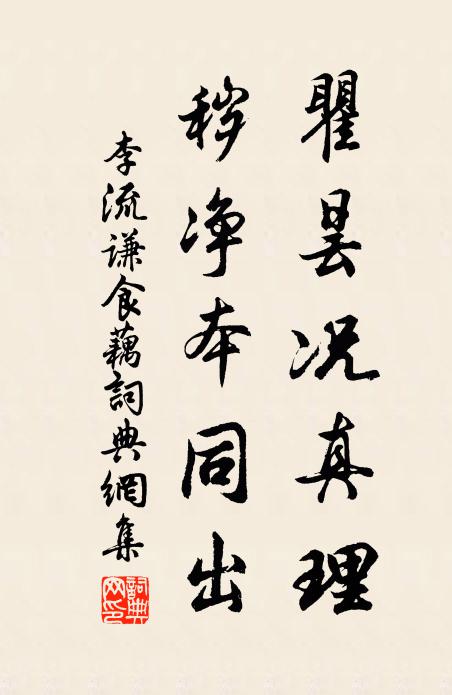 瞿昙况真理
秽净本同出
李流谦食藕詞典網集
詞典网印